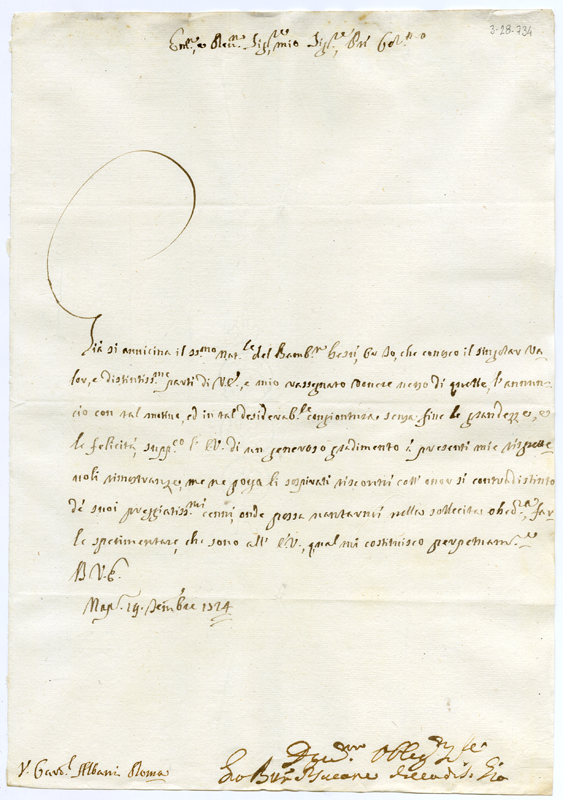 3-28-734
Em.re, e Rev.re Sig.re mio Sig.re Pñ Col.mo
Già si avvicina il ss.mo Nat.le del Bamb.n Gesù, ed Io, che conosco il singolar Va-
lor, e distintiss.me parti di V.E., e mio rassegnato dovere verso di quelle, l'annun-
cio con tal motivo, ed in tal desiderab.le congiontura senza fine le grandezze, e
le felicità, supp.co l'E.V. di un generoso gradimento à presenti mie rispette-
voli rimostranze, me ne porga li sospirati riscontri coll' onor sì contradistinto
de' suoi preggiatiss.mi cenni, onde possa vantarmi nella sollecita obed.za far
le sperimentare, che sono all' E.V., qual mi costituisco perpetuam.te
D V.E.
Nap. 19. Dembre 1724
V. Card.l Albani Roma
Dev.mo Oblig.mo Se.re